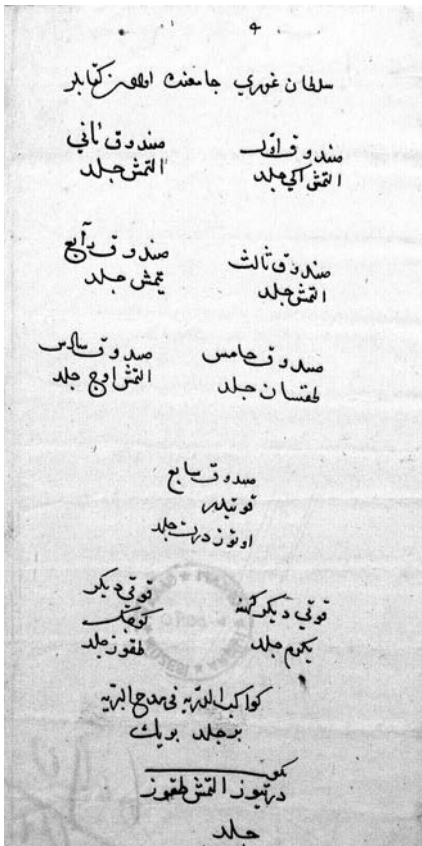 سلطان غوري جامعنك كتابلر
صندوق اول
التمش اكي جلد
صندوق ثاني
التمش جلد
صندوق ثالث
التمش جلد
صندوق رابع
يتمش جلد
صندوق خامس
طقسان جلد
صندوق سادس
التمش اوچ جلد
صندوق سابع
قوتيدر
اوتوز درت جلد
قوتي ديكر
يكرم جلد
قوتي ديكر
كوچك
طقوز جلد
كواكب الدريه في مدح البريه
بر جلد بويك
يكون
درتيوز التمش طقوز
جلد